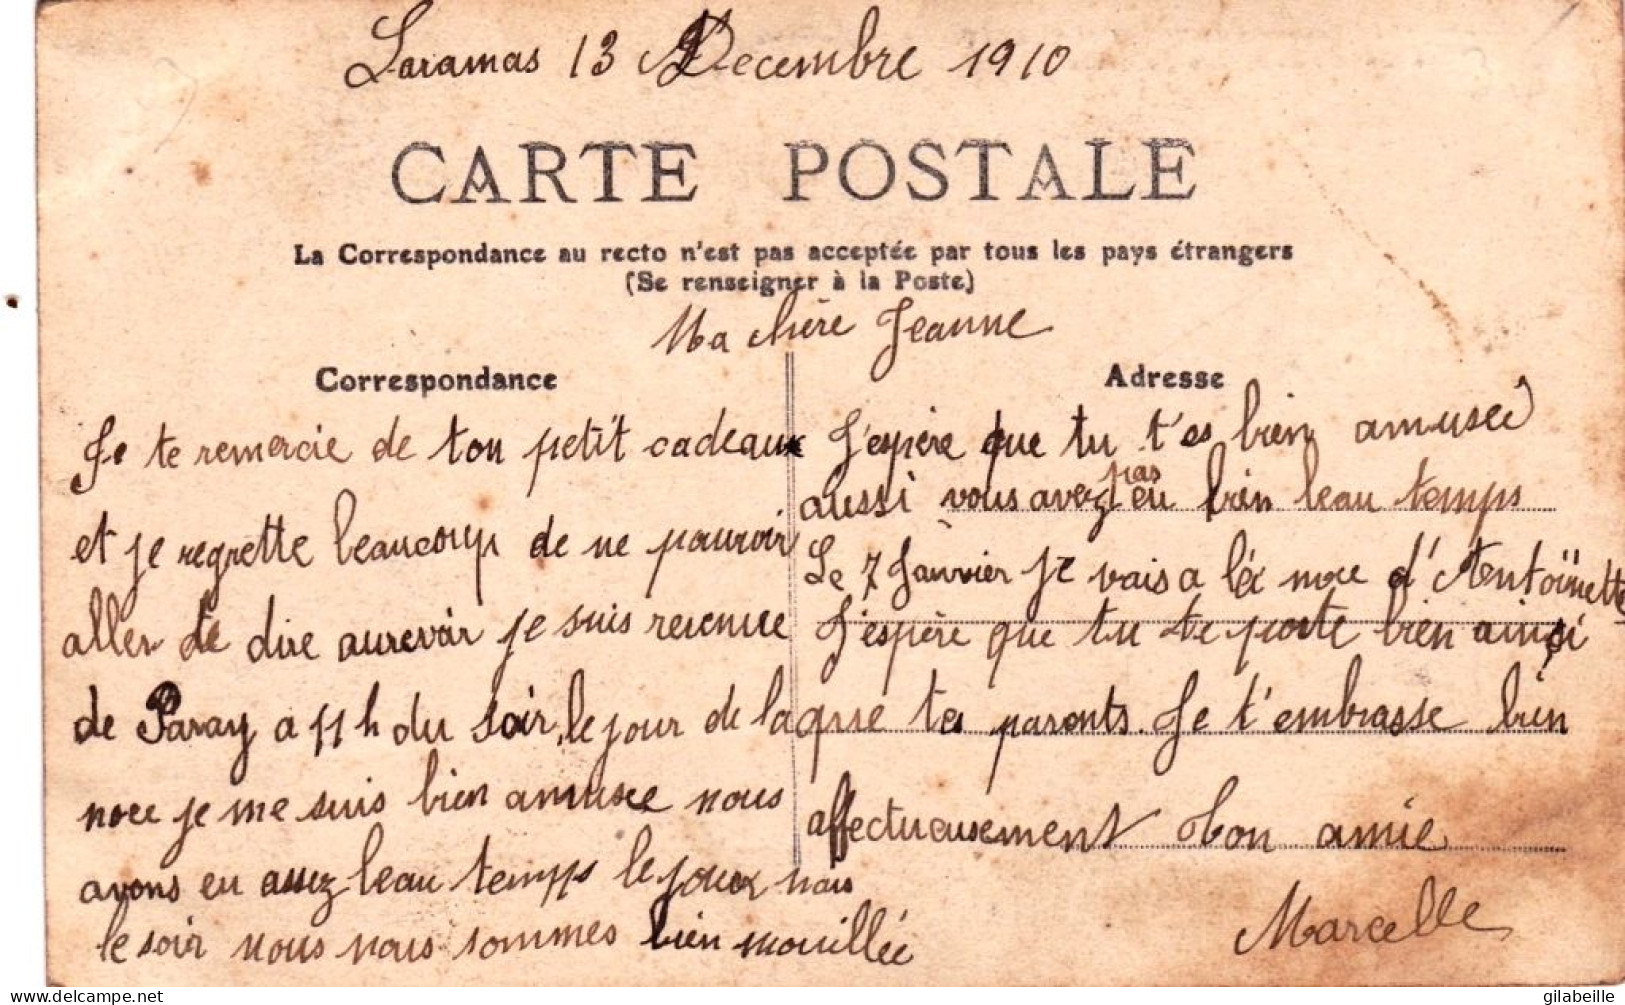 Laramas 13 Decembre 1910
CARTE POSTALE
La Correspondance au recto n'est pas acceptée par tous les pays étrangers
(Se renseigner à la Poste)
Ma chère Jeanne
Correspondance
Je te remercie de ton petit cadeaux
et je regrette beaucoup de ne pouvoir
aller te dire aurevoir je suis revenue
de Paray a 11 h du soir, le jour de la
noce je me suis bien amusée nous
avons eu assez beau temps le jour mais
le soir nous nous sommes bien mouillée
Adresse
J'espère que tu t'es bien amusée
aussi vous avez pas eu bien beau temps
Le 7 Janvier je vais a la noce d'Antoïnette
J'espère que tu te porte bien ainsi
que tes parents. Je t'embrasse bien
affectueusement ton amie
Marcelle
delcampe.net
gilabeille